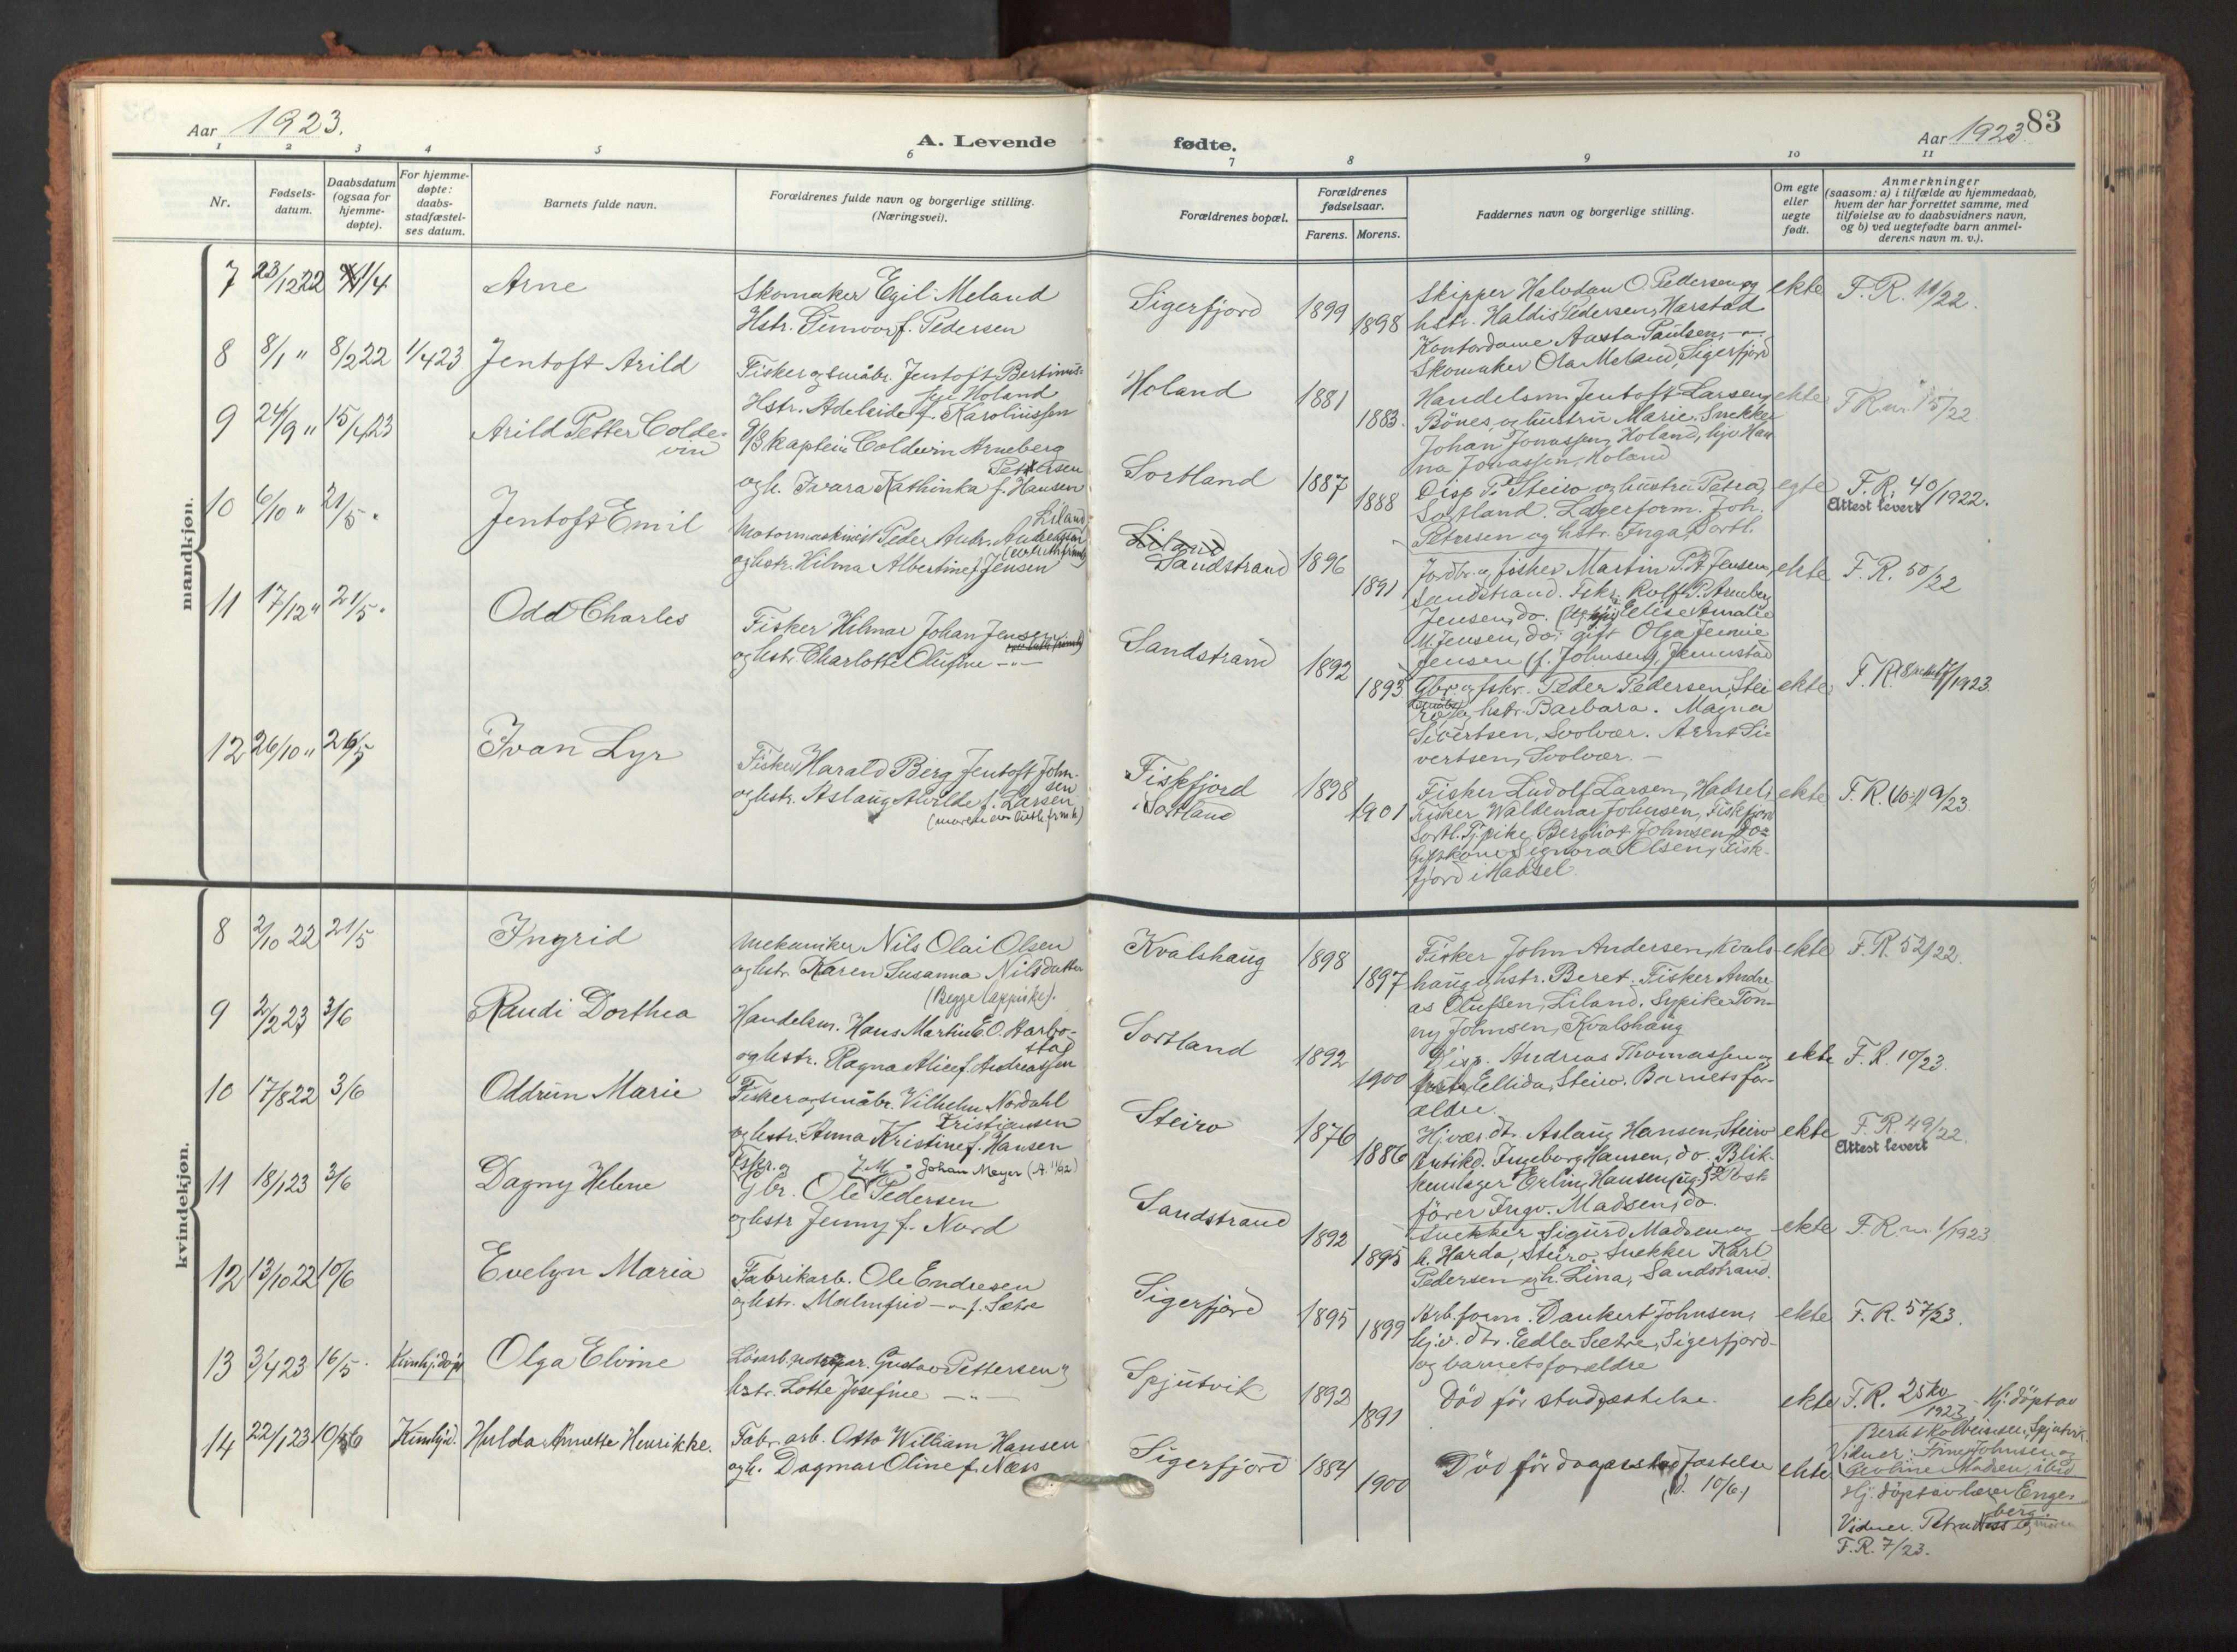 Aar 1923.
A. Levende
fødte.
Aar 1923.
83
1 2 3 4 5 6 7 8 9 10 11
Nr.
Fødsels-
datum.
Daabsdatum
(ogsaa for
hjemme-
døpte).
For hjemme-
døpte:
daabs-
stadfæstel-
ses datum.
Barnets fulde navn.
Forældrenes fulde navn og borgerlige stilling.
(Næringsvei).
Forældrenes bopæl.
Forældrenes
fødselsaar.
Farens. Morens.
Faddernes navn og borgerlige stilling.
Om egte
eller
uegte
født.
Anmerkninger
(saasom: a) i tilfælde av hjemmedaab,
hvem der har forrettet samme, med
tilføielse av to daabsvidners navn,
og b) ved uegtefødte barn anmel-
derens navn m. v.).
mandkjøn.
7 23/12 22 1/4 Arne
Skomaker Egil Meland
Hstr. Gunvor f. Pedersen
Sigerfjord 1899 1898
Skipper Halvdan O. Pedersen og
hstr. Haldis Pedersen, Harstad
Kontordame Aasta Paulsen, -"-
Skomaker Ola Meland, Sigerfjord
ekte F.R. 11/22.
8 8/1 " 8/2 22 1/4 23 Jentoft Arild
Fisker og småbr. Jentoft Bertinus-
Holand
Hstr. Adelaide f. Karoliussen
Holand 1881 1883.
Handelsm. Jentoft Larsen,
Bönes, og hustru Marie. Snekker
Johan Jonassen, Holand, hjv Han
na Jonassen, Holand
ekte
9 24/9 " 15/4 23 Arild Petter Colde-
vin
D/S kaptein Coldevin Arneberg
Pettersen
og h. Ivara Kathinka f. Hansen
Sortland 1887 1888
Disp. P. Steiro og hustru Petra,
Sortland. Lagerform. Joh.
Petersen og hstr. Inga, Sortl.
egte F.R. 40/1922.
Attest levert
10 6/10 " 21/5 " Jentoft Emil
Motormaskinist Peder Andr. Andreassen
og hstr. Hilma Albertine f. Jensen
Liland
Sandstrand 1896 1891
Jordbr. og fisker Martin P. A. Jensen,
Sandstrand. Fskr. Rolf P. Arneberg
Jensen, do. Elise Amalie
M. Jensen, do. gift Olga Jennie
Jensen (f. Johnsen), Jennestad
ekte F.R. 50/22
11 17/12 " 21/5 " Odd Charles
Fisker Hilmar Johan Jensen
og hstr. Charlotte Olufine -"-
Sandstrand 1892 1893
Gbr. og fskr. Peder Pedersen, Stei
ro, og hstr. Barbara. Magna
Sivertsen, Svolvær. Arnt Si-
vertsen, Svolvær. -
ekte
12 26/10 " 26/5 Ivan Lyr
Fisker Harald Berg Jentoft John-
sen
og hstr. Aslaug Alvilde f. Larsen
Fiskfjord
i Sortland 1898 1901
Fisker Ludolf Larsen, Hadsel,
Fisker Waldemar Johnsen, Fiskfjord
Sortl. Tj.pike Bergliot Johnsen, do=
Gift kone Signora Olsen, Fisk-
fjord i Hadsel.
ekte
kvindekjøn.
8 2/10 22 21/5 Ingrid
Mekaniker Nils Olai Olsen
og hstr. Karen Susanna Nilsdatter
(Begge lappiske).
Kvalshaug 1898 1897
Fisker John Andersen, Kvals-
haug og hstr. Beret. Fisker Andre-
as Olufsen, Liland. Sypike Ton-
ny Johnsen, Kvalshaug
ekte F.R. 52/22.
9 2/2 23 3/6 Randi Dorthea
Handelsm. Hans Martin E. O. Harbo-
stad
og hstr. Ragna Alice f. Andreassen
Sortland 1892 1900
Disp. Andreas Thomassen og
hstr. Ellida, Steiro. Barnets for-
ældre.
ekte F.R. 10/23.
10 17/8 22 3/6 Oddrun Marie
Fisker og småbr. Vilhelm Nordahl
Kristiansen
og hstr. Anna Kristine f. Hansen
Steiro 1876 1886
Hjvær. dtr. Aslaug Hansen, Steiro
Butikd. Ingeborg Hansen, do. Blik-
kenslager Erling Hansen (ug.) Post-
fører Ingv. Madsen, do.
ekte F.R. 49/22.
Attest levert
11 18/1 23 3/6 Dagny Helene
Fskr. og Johan Meyer
Gbr. Ole Pedersen
og hstr Jenny f. Nord
Sandstrand 1892 1895
Snekker Sigurd Madsen og
h. Harda, Steiro, Snekker Karl
Pedersen og h. Lina, Sandstrand.
ekte F.R. nr. 1/1923
12 13/10 22 10/6 Evelyn Maria
Fabrikarb. Ole Endresen
og hstr. Malmfrid -"- f. Sætre
Sigerfjord 1895 1899
Arb.form. Dankert Johnsen,
hjv. dtr. Edla Sætre, Sigerfjord
og barnets forældre
ekte F.R. 57/23.
13 3/4 23 16/5. Kun hj.døpt Olga Elvine
Gustav Pettersen og
hstr. Lotte Josefine -"-
Spjutvik 1892 1891
Död för stadfæstelse.
ekte F.R. 25
1923 - Hj. döpt av
Berit Kolbeinsen, Spjutvik.
Vidner: Johnsen og
Madsen, ibid
14 22/1 23 10/6 Kun hjd. Hulda Annette Henrikke.
Fabr. arb. Otto William Hansen
og h. Dagmar Oline f. Næss
Sigerfjord 1884 1900
Död för stadfæstelse
(d. 10/6)
ekte
Hj. döpt av lærer Enge-
berg.
Vidner.
F.R. 7/23.